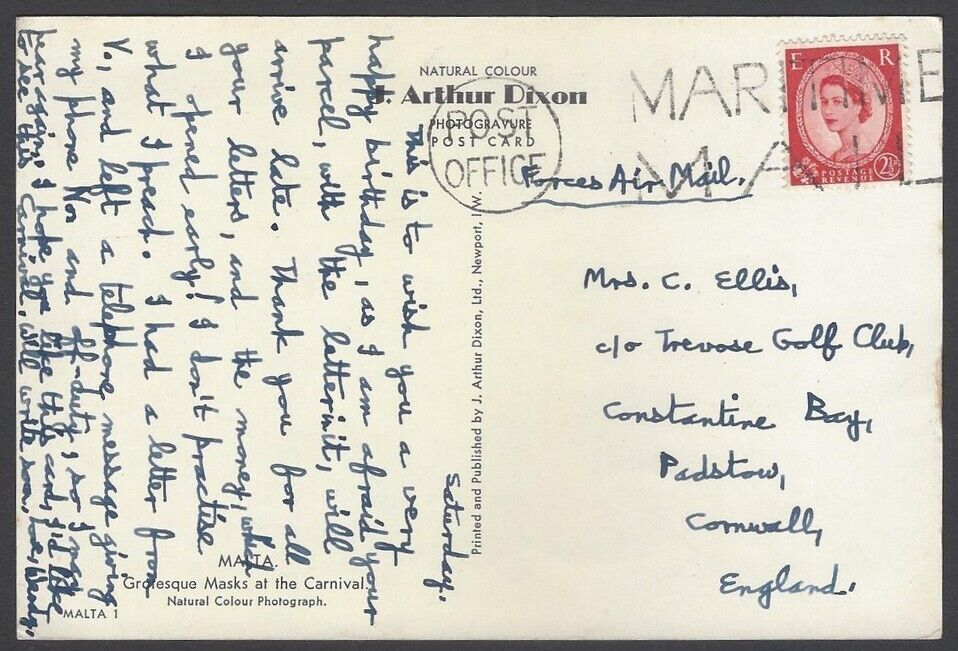 NATURAL COLOUR
J. Arthur Dixon
PHOTOGRAVURE
POST CARD
POST
OFFICE
MARITIME
MAIL
E R
POSTAGE
REVENUE
2½
Forces Air Mail.
Mrs. C. Ellis,
c/o Trevose Golf Club,
Constantine Bay,
Padstow,
Cornwall,
England.
Saturday.
This is to wish you a very
happy birthday, as I am afraid your
parcel, with the letter in it, will
arrive late. Thank you for all
your letters, and the money, which
I opened early! I don't practise
what I preach. I had a letter from
V., and left a telephone message giving
my phone No. and off-duty, so I may
hear again. I hope you like this card, I'd like
to see this Carnival. Will write soon, Love,
Printed and Published by J. Arthur Dixon, Ltd., Newport, I.W.
MALTA.
Grotesque Masks at the Carnival.
Natural Colour Photograph.
MALTA 1